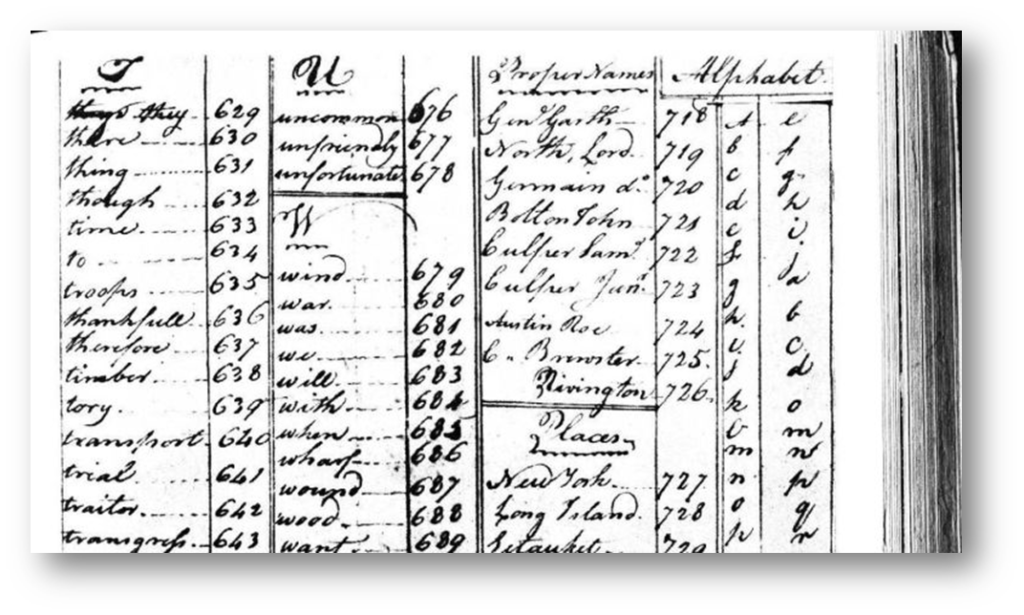 T
they they 629
there 630
thing 631
though 632
time 633
to 634
troops 635
thankfull 636
therefore 637
timber 638
tory 639
transport 640
trial 641
traitor 642
transgress 643
U
uncommon 676
unfriendly 677
unfortunate 678
W
wind 679
war 680
was 681
we 682
will 683
with 684
when 685
wharf 686
wound 687
wood 688
want 689
Proper Names
Genl Garth 718
North, Lord 719
Germain do 720
Bolton John 721
Culper Saml 722
Culper Junr 723
Austin Roe 724
C. Brewster 725
Rivington 726
Places
New York 727
Long Island 728
Setauket 729
Alphabet
a e
b f
c g
d h
e i
f j
g a
h b
i c
j d
k o
l m
m n
n p
o q
p r